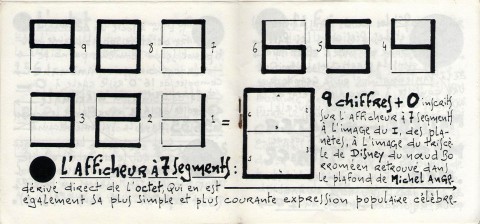 9 8 7
6 5 4
3 2 1 =
9 chiffres + 0 inscrits
sur l'afficheur à 7 segments
à l'image du I, des pla-
nètes, à l'image du triscè-
le de Disney du nœud Bo
rroméen retrouvé dans
le plafond de Michel Ange.
L'Afficheur à 7 segments :
dérivé direct de l'octet, qui en est
également sa plus simple et plus courante expression populaire célèbre.